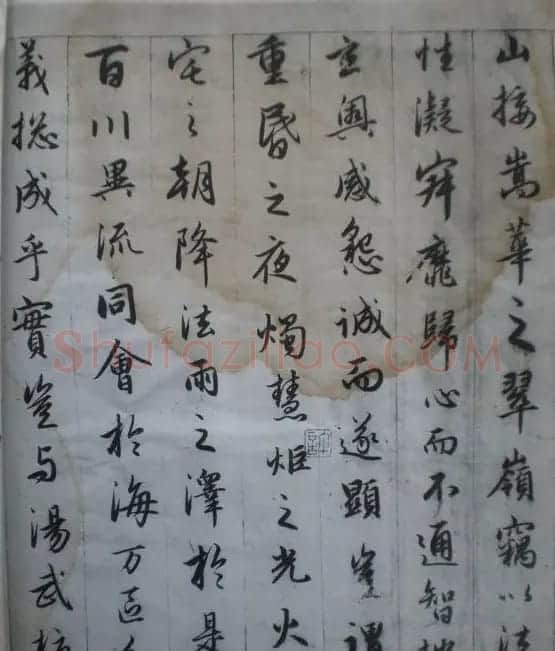 山接嵩華之翠嶺竊以法
性凝寂靡歸心而不通智地
玄奧感懇誠而遂顯豈謂
重昏之夜燭慧炬之光火
宅之朝降法雨之澤於是
百川異流同會於海万區分
義揔成乎實豈与湯武校
Shufaziliao.COM